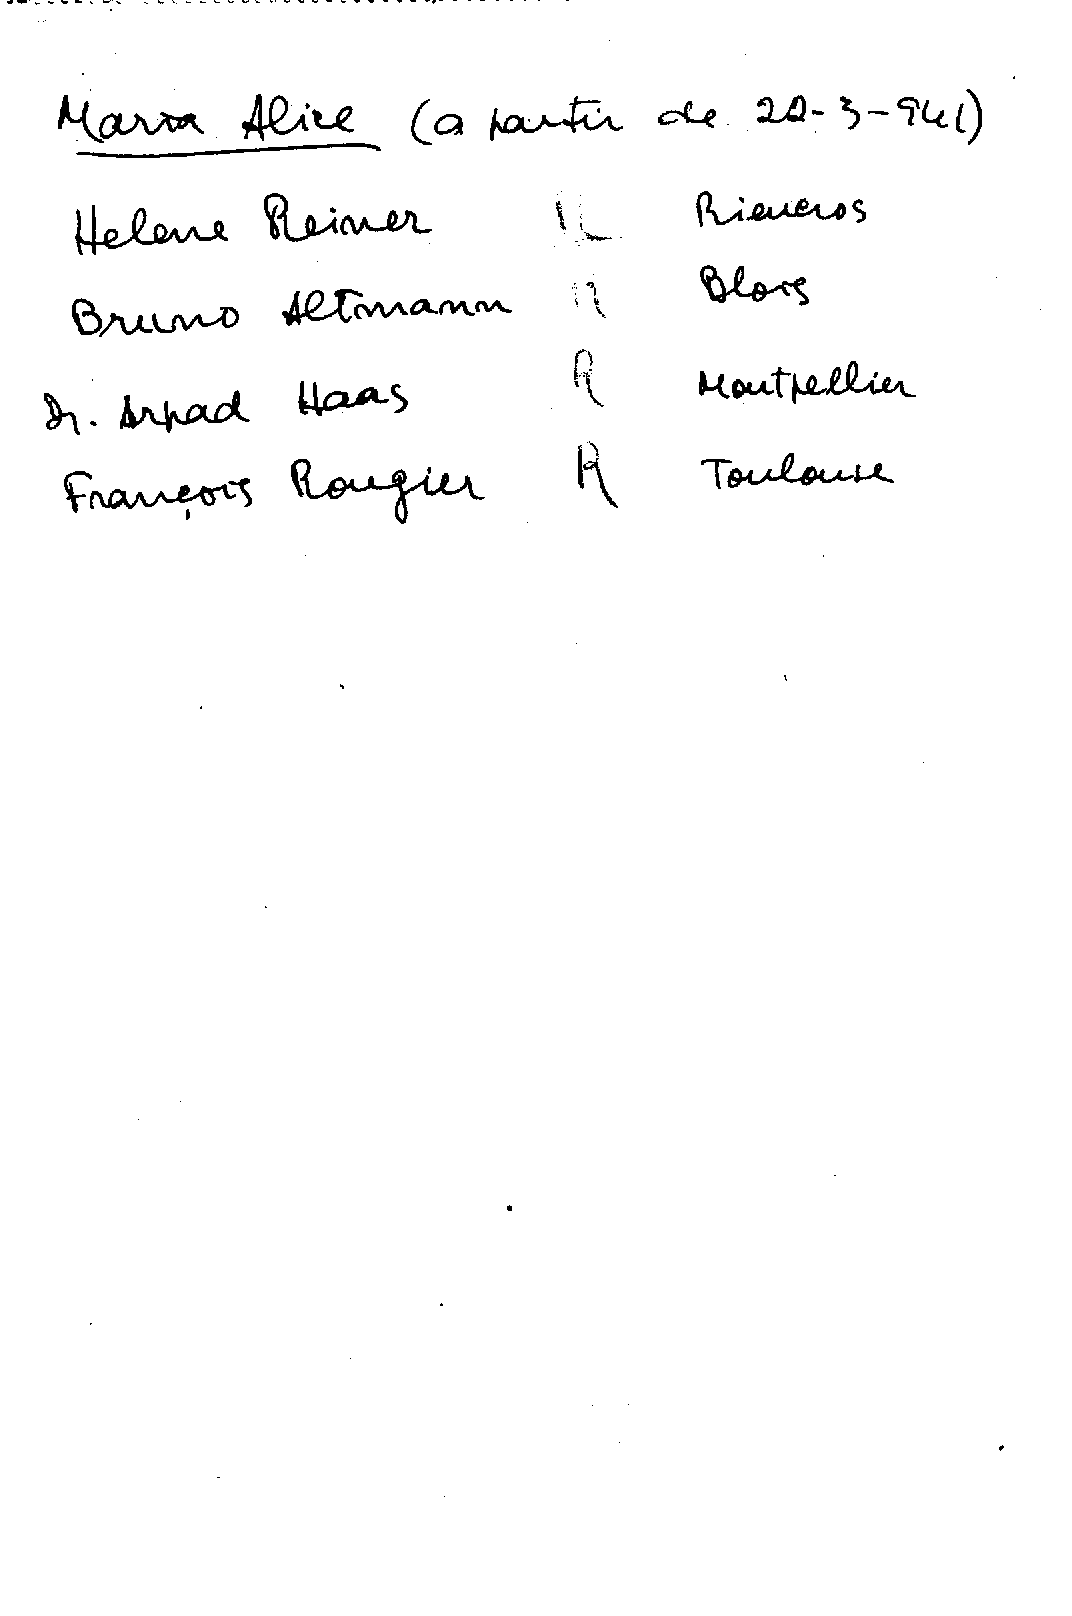 Maria Alice (a partir de 20-3-941)
Helene Reiner R Rieucros
Bruno Altmann R Blois
Dr. Arpad Haas R Montpellier
François Rougier R Toulouse